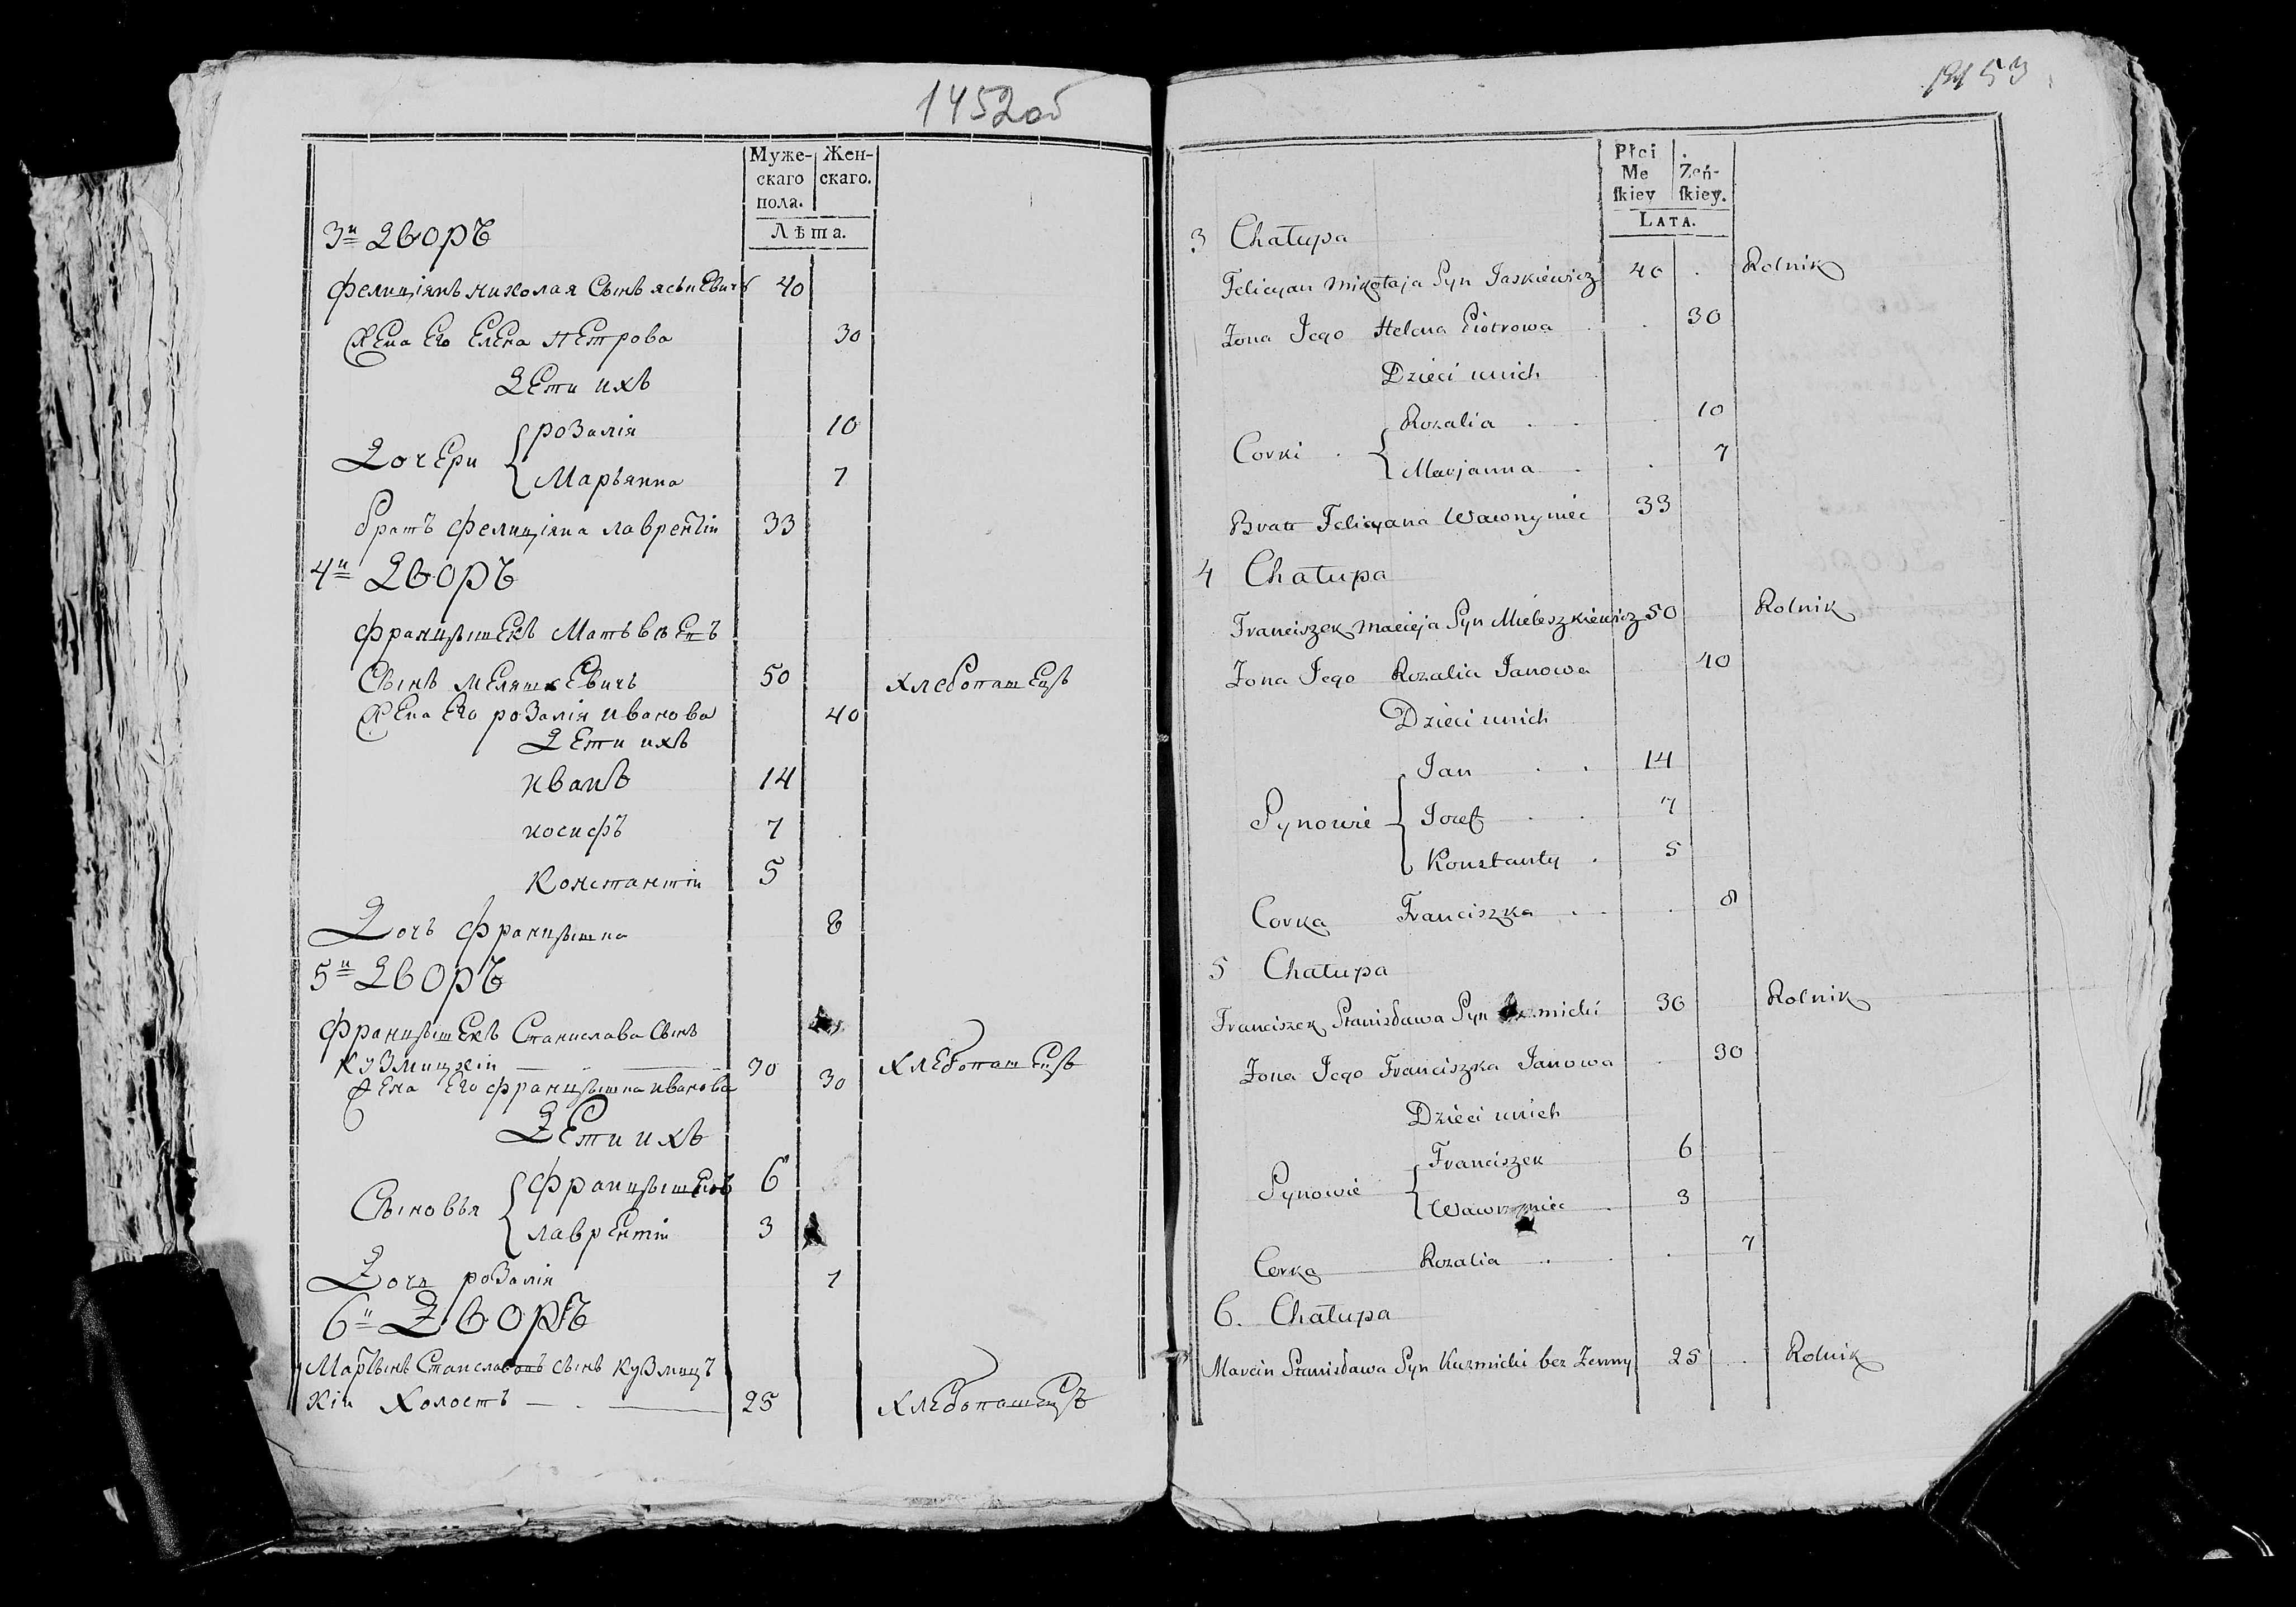 1452об
Муже-
скаго
пола.
Жен-
скаго.
Лѣта.
3й Дворъ
Фелиціянъ Николая Сынъ Яськевичъ 40
Жена Его Елена Петрова 30
Дети ихъ
Дочери { Розалія 10
Марьянна 7
братъ Фелиціяна Лаврентій 33
4й Дворъ
Францышекъ Матьвеевъ
Сынъ Меляшкевичъ 50 хлебопашецъ
Жена Его розалія Иванова 40
Дети ихъ
Иванъ 14
иосифъ 7
Константій 5
Дочь Францышка 8
5й Дворъ
Францышекъ Станислава Сынъ
Кузмицкій 30 хлебопашецъ
Жена Его Францышка Иванова 30
Дети ихъ
Сыновья { Францышекъ 6
лаврентій 3
Дочь розалія 7
6й Дворъ
Мартынъ Станиславовъ сынъ Кузмиц
кій Холостъ 25 хлебопашецъ
1453
Płci
Me
ſkiey
Zeń-
ſkiey.
LATA.
3 Chałupa
Felicyan Mikołaja Syn Jaskiewicz 40 . Rolnik
Zona Jego Helena Piotrowa . . 30
Dzieci unich
Corki . { Rozalia . . . 10
Marjanna . . 7
Bratt Felicyana Wawrzyniec 33
4 Chałupa
Franciszek Macieja Syn Mieleszkiewicz 50 Rolnik
Zona Jego Rozalia Janowa 40
Dzieci unich
Synowie { Jan . . 14
Jozef . . 7
Konstanty . 5
Corka Franciszka . . . 8
5 Chałupa
Franciszek Stanisława Syn Kuzmicki 30 Rolnik
Zona Jego Franciszka Janowa . 30
Dzieci unich
Synowie { Franciszek 6
Wawrzyniec . 3
Corka Rozalia . . . 7
6. Chałupa
Marcin Stanisława Syn Kuzmicki bez Zenny 25 . Rolnik